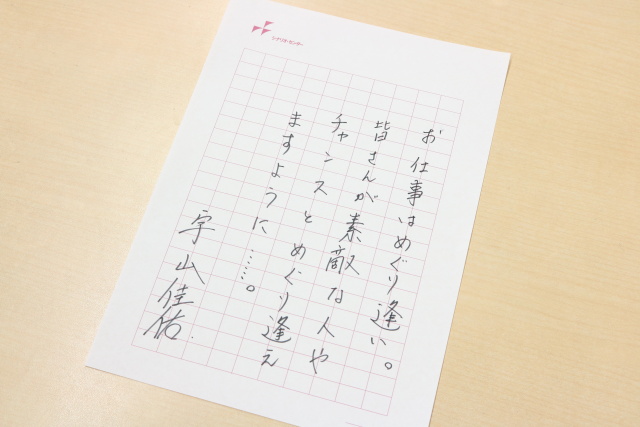 シナリオ・センター
お仕事はめぐり逢い。
皆さんが素敵な人や
チャンスとめぐり逢え
ますように……。
宇山佳佑